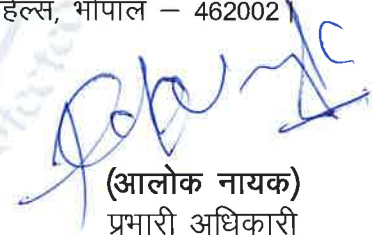 हिल्स, भोपाल – 462002।
(आलोक नायक)
प्रभारी अधिकारी